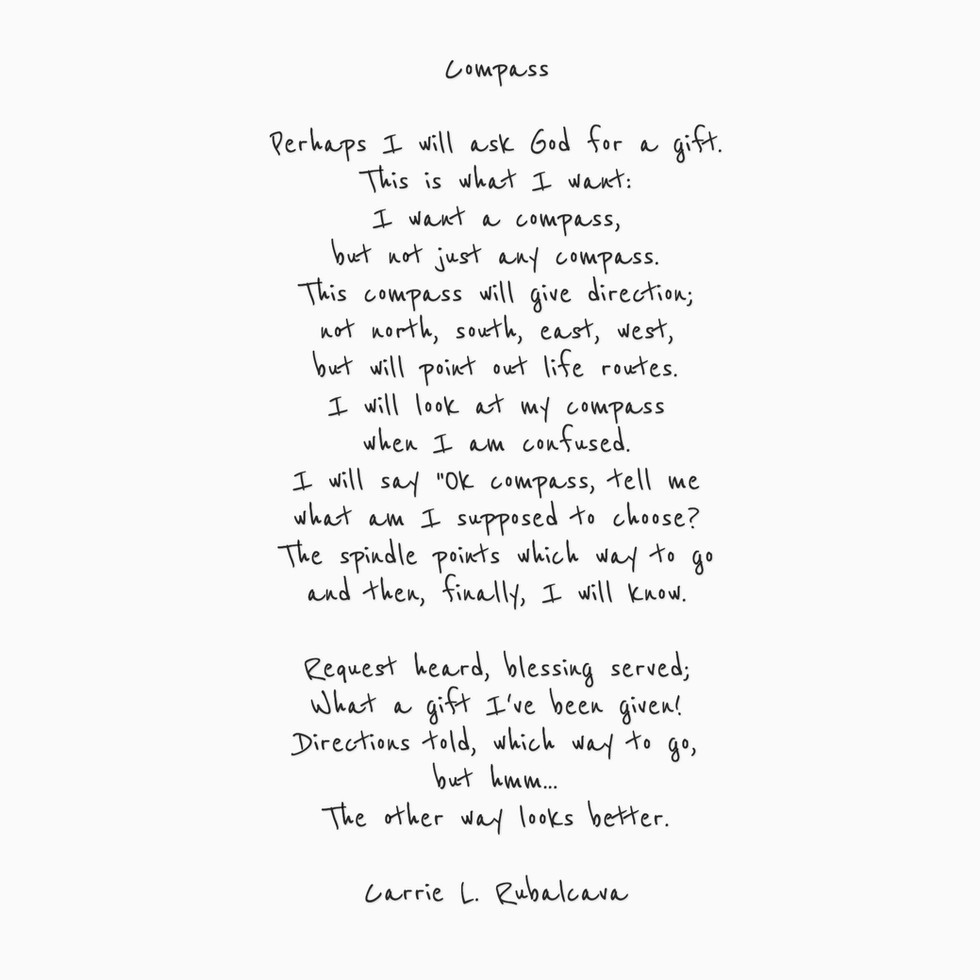 Compass
Perhaps I will ask God for a gift.
This is what I want:
I want a compass,
but not just any compass.
This compass will give direction;
not north, south, east, west,
but will point out life routes.
I will look at my compass
when I am confused.
I will say "Ok compass, tell me
what am I supposed to choose?
The spindle points which way to go
and then, finally, I will know.
Request heard, blessing served;
What a gift I've been given!
Directions told, which way to go,
but hmm...
The other way looks better.
Carrie L. Rubalcava